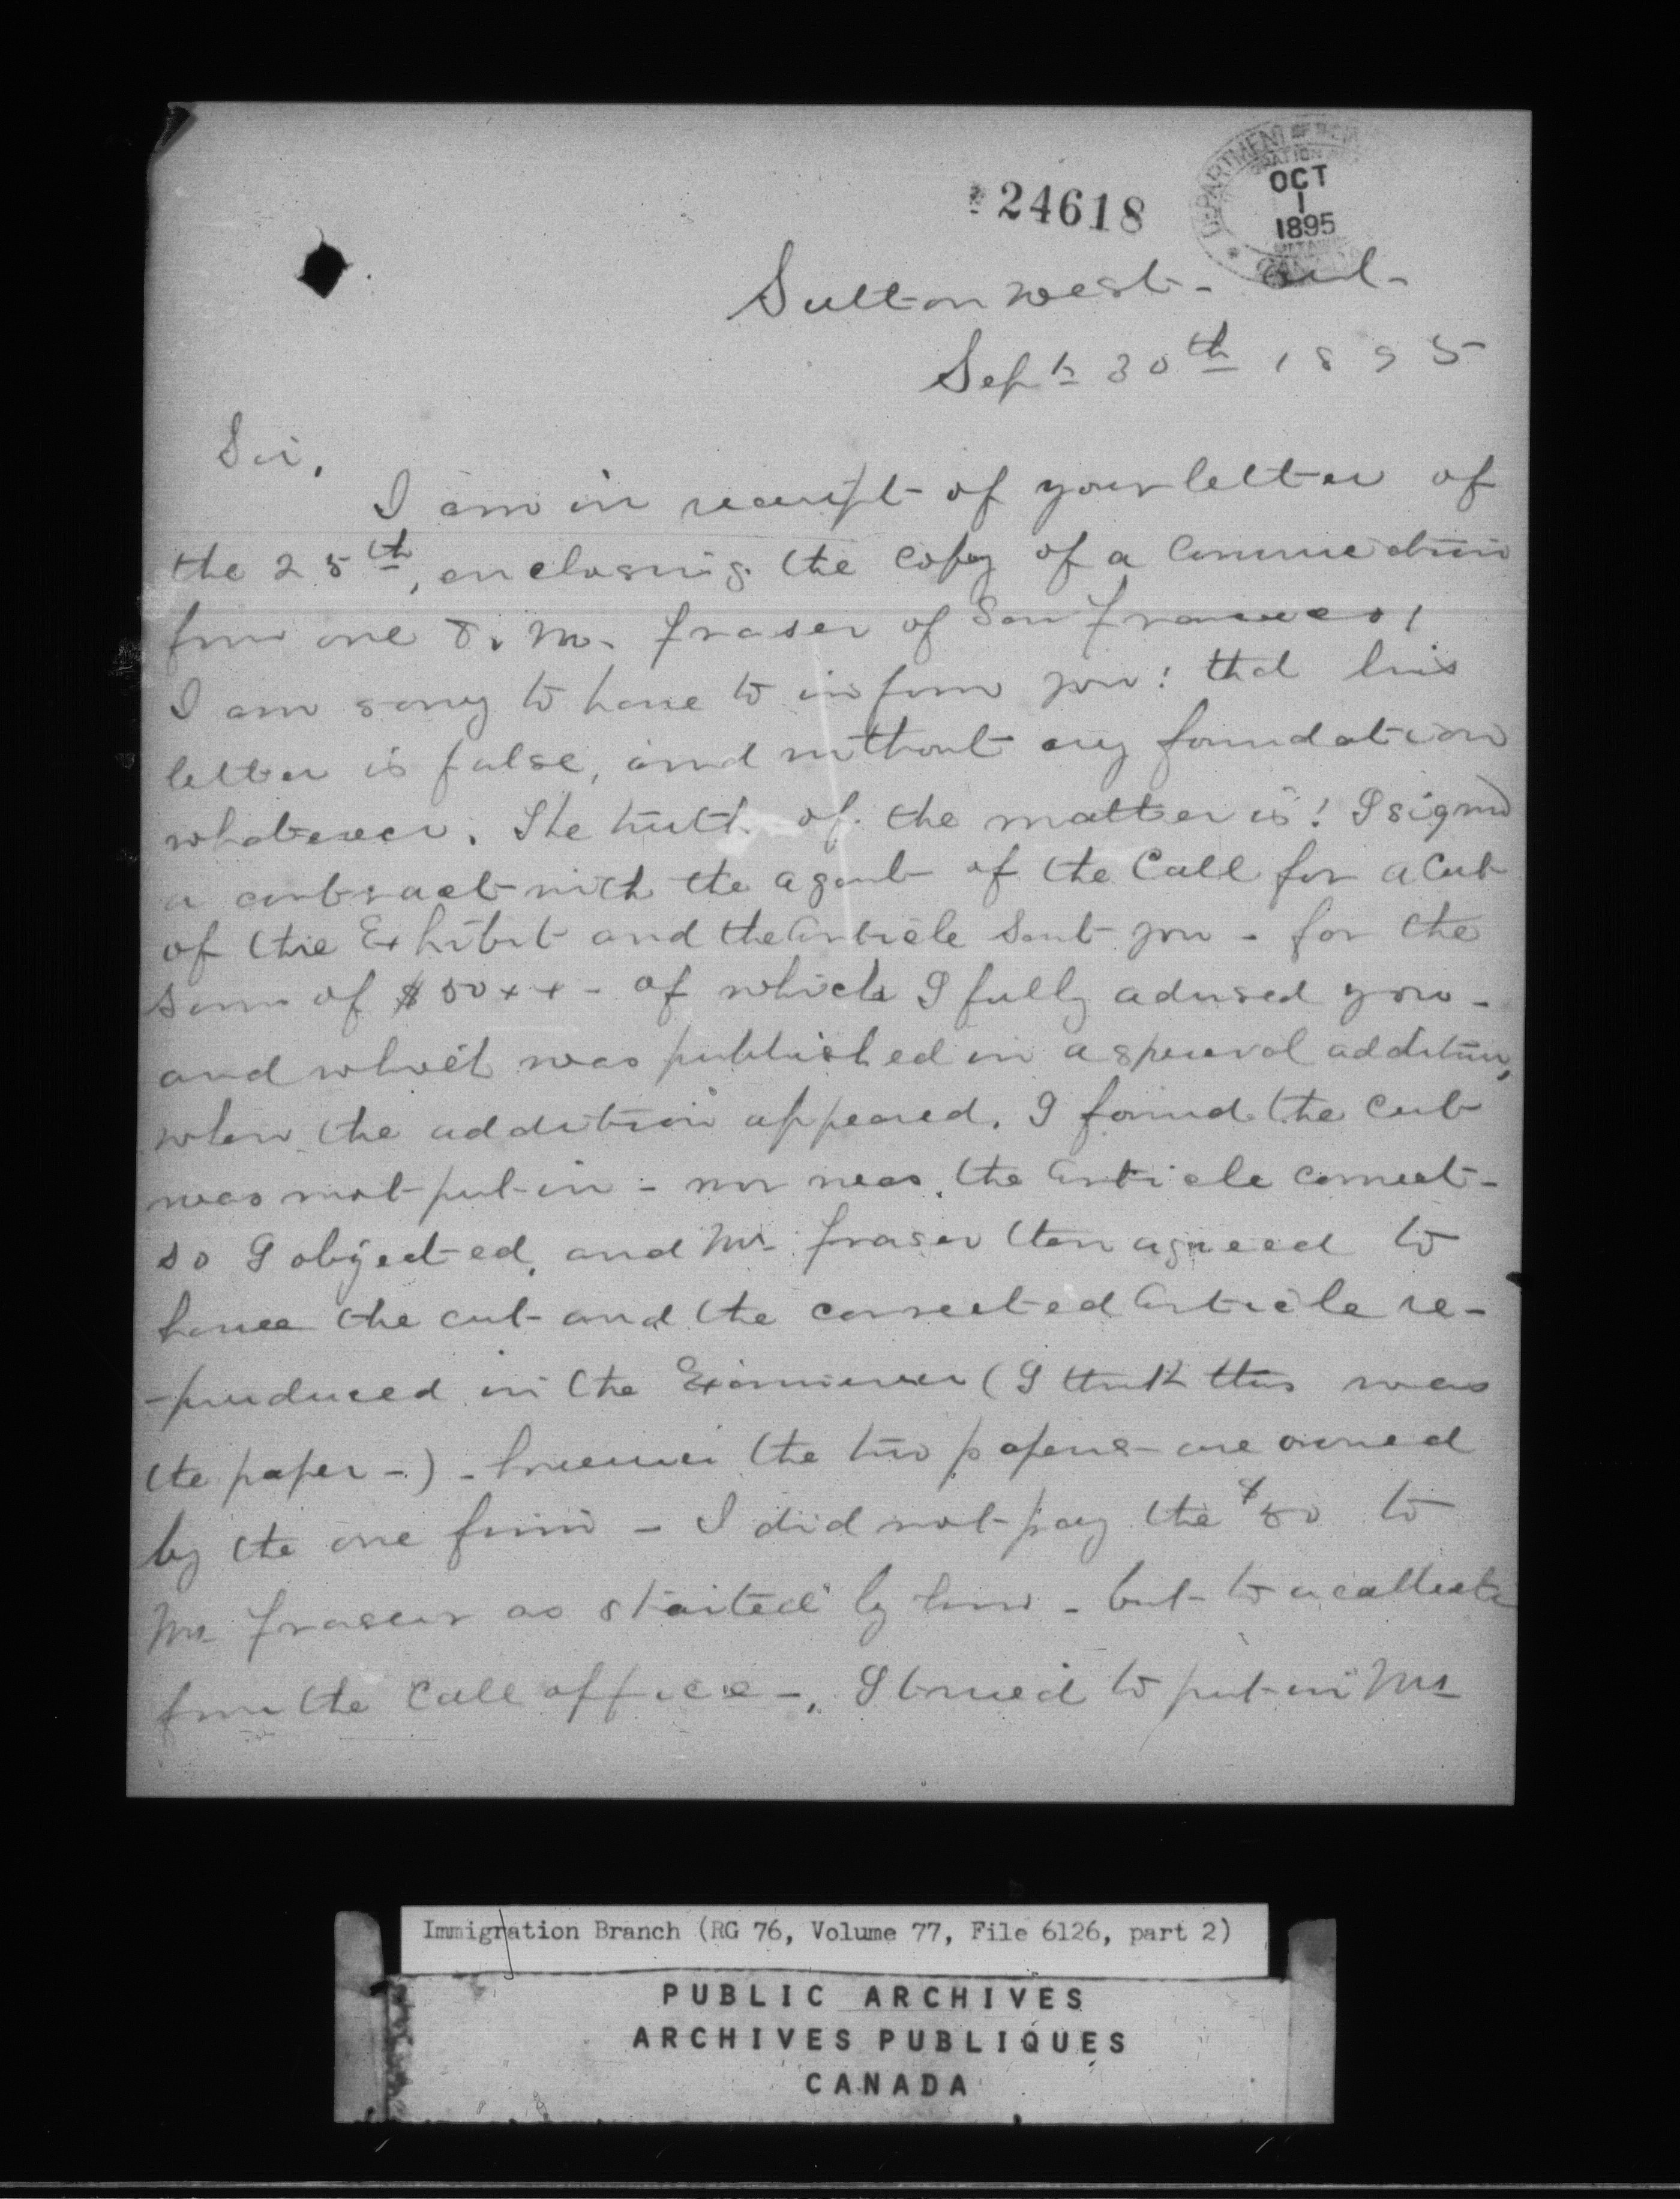 24618
DEPARTMENT OF THE
OCT
1
1895
CANADA
Sutton West - Ont -
Sept 30th 1895
Sir,
I am in receipt of your letter of
the 25th, enclosing the copy of a
from one D. M. Fraser of San Francisco,
I am sorry to have to inform you! that his
letter is false, and without any foundation
whatever. The truth of the matter is! I signed
a contract with the agent of the Call for a Cut
of the Exhibit and the Article sent you - for the
sum of $50xx - of which I fully advised you -
and which was published in a special addition,
when the addition appeared. I found the cut
was not put in - nor was the Article correct -
so I objected, and Mr Fraser then agreed to
have the cut and the corrected Article re-
-produced in the Examiner (I think this was
the paper -) - however the two papers are owned
by the one firm - I did not pay the $50 to
Mr Fraser as started by him - but to a collector
from the Call office -, I tried to put in Mr
Immigration Branch (RG 76, Volume 77, File 6126, part 2)
PUBLIC ARCHIVES
ARCHIVES PUBLIQUES
CANADA